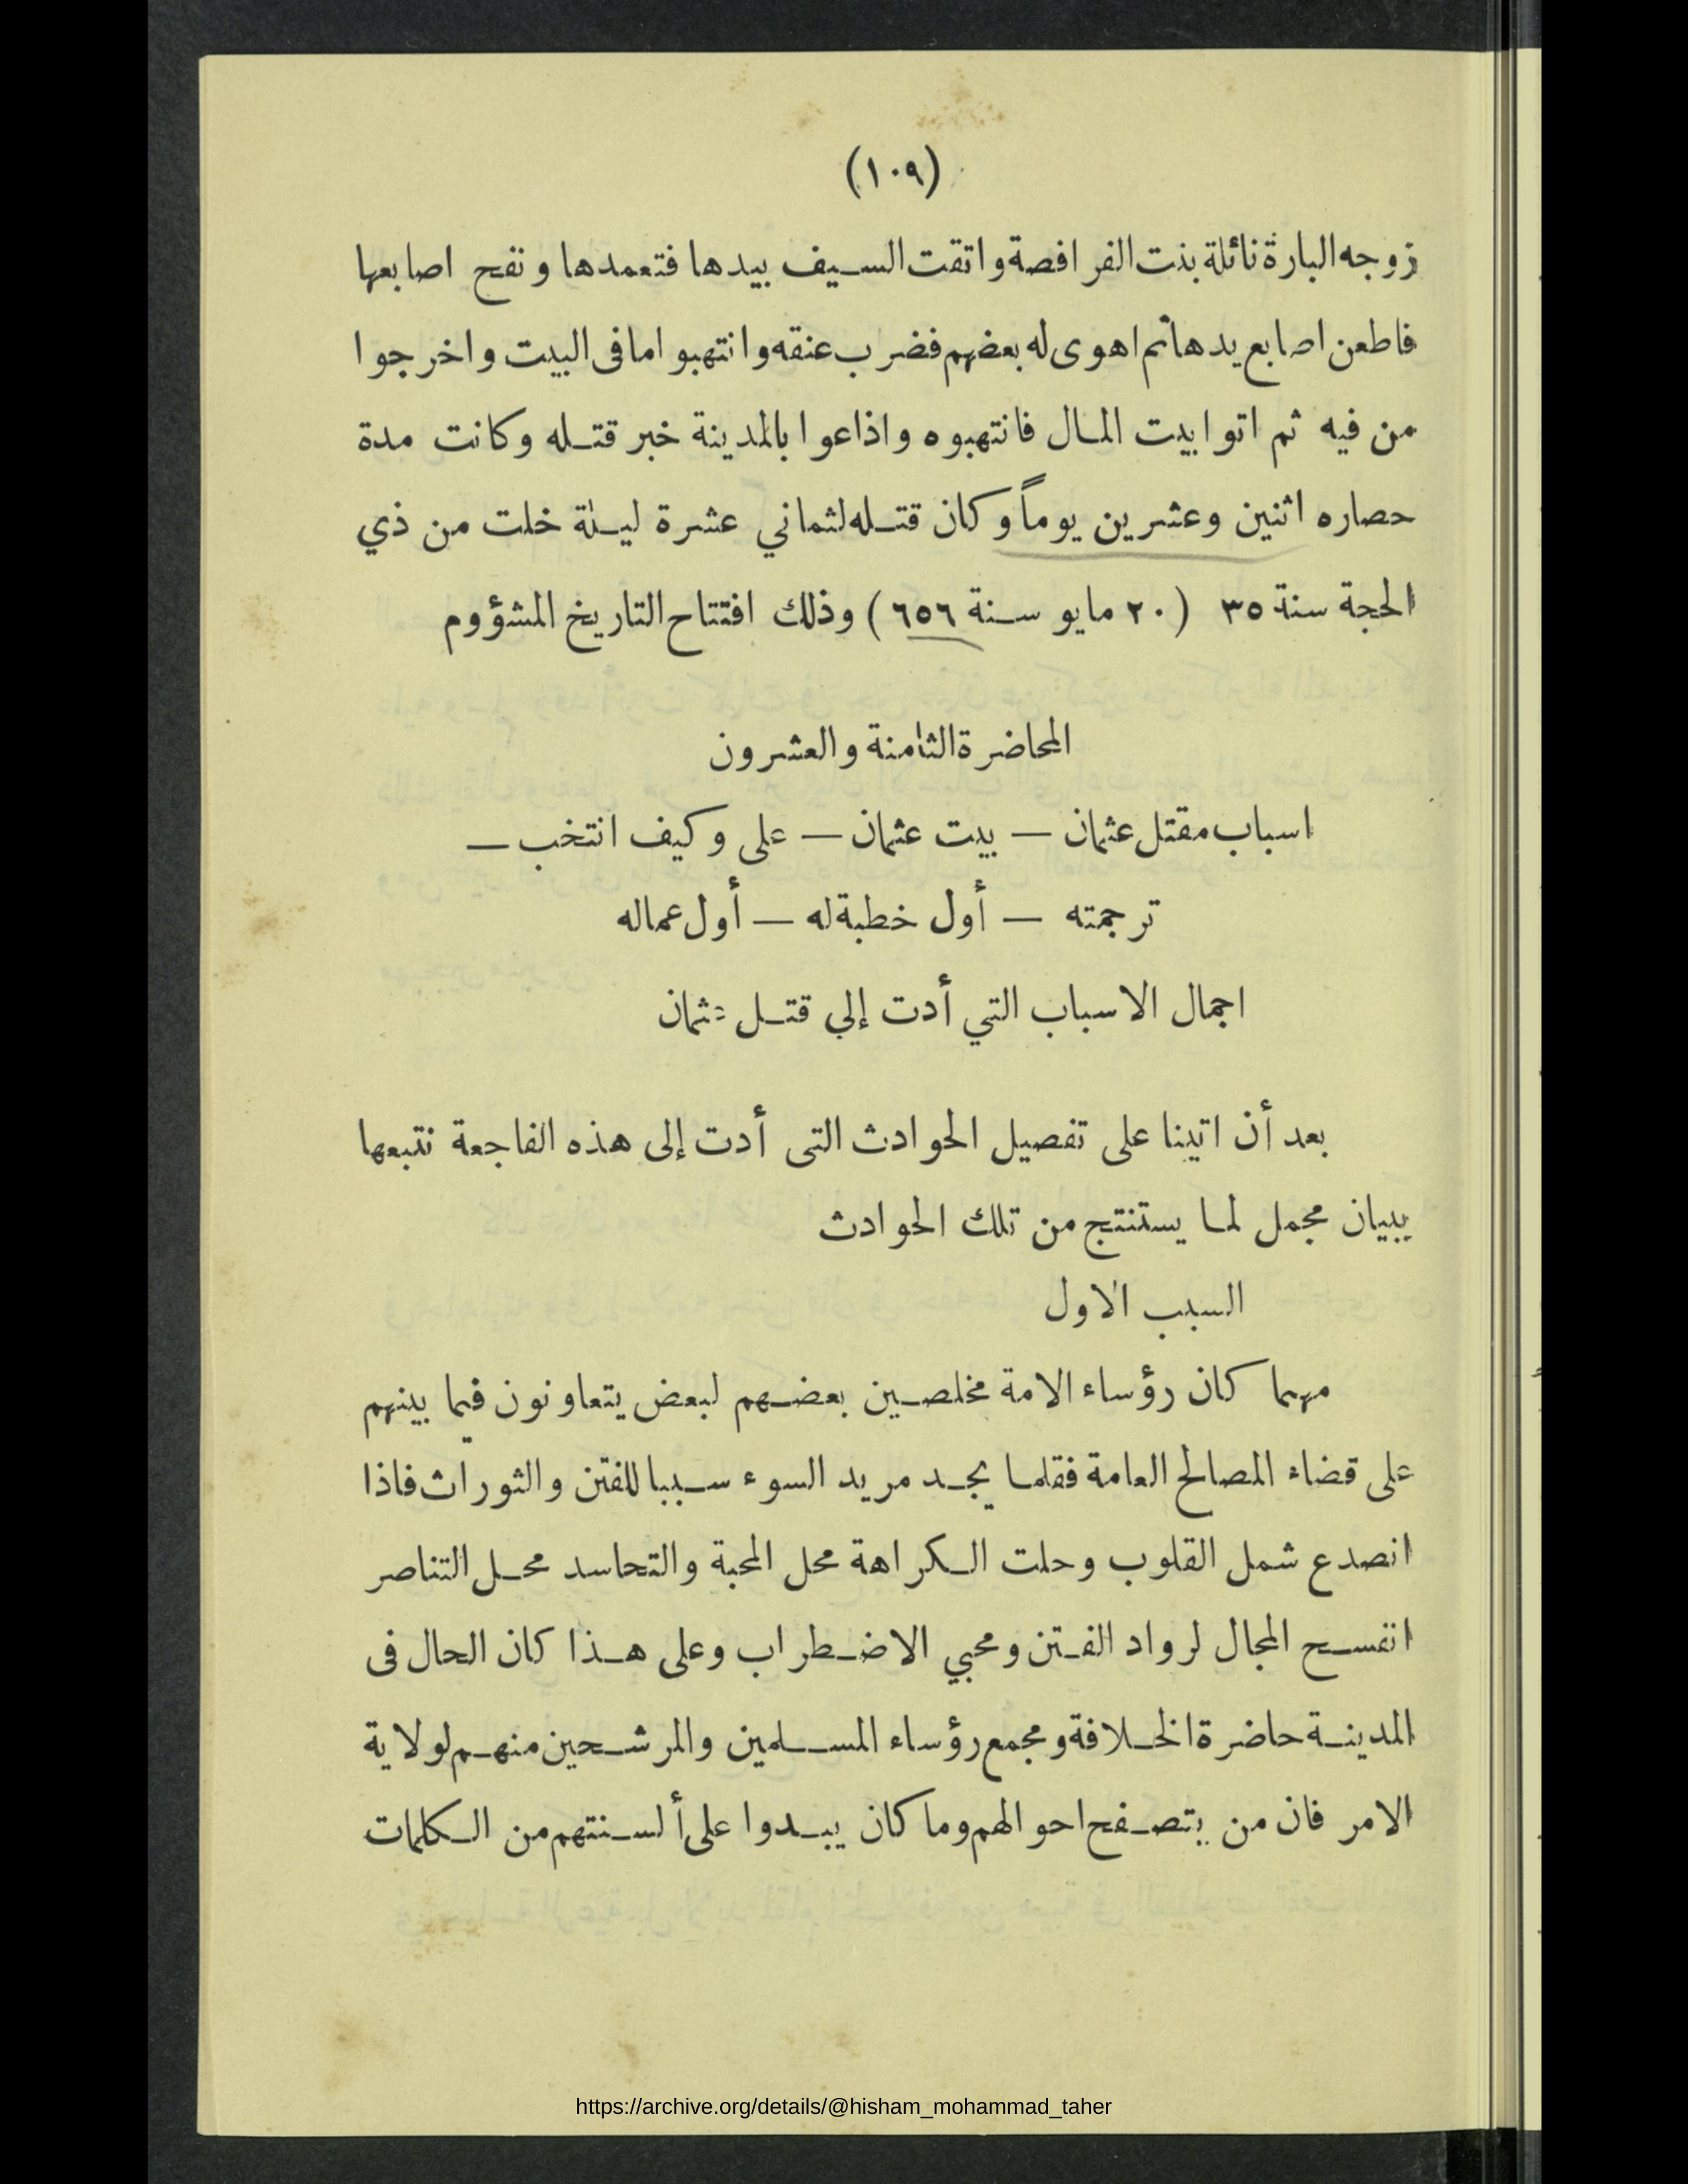 (١٠٩)
زوجه البارة نائلة بنت الفرافصة واتقت السيف بيدها فتعمدها ونفح اصابعها
فاطعن اصابع يدها ثم اهوى له بعضهم فضرب عنقه وانتهبوا مافى البيت واخرجوا
من فيه ثم اتوا بيت المال فانتهبوه واذاعوا بالمدينة خبر قتله وكانت مدة
حصاره اثنين وعشرين يوماً وكان قتله لثماني عشرة ليلة خلت من ذي
الحجة سنة ٣٥ (٢٠ مايو سنة ٦٥٦) وذلك افتتاح التاريخ المشؤوم
المحاضرة الثامنة والعشرون
اسباب مقتل عثمان — بيت عثمان — على وكيف انتخب —
ترجمته — أول خطبة له — أول عماله
اجمال الاسباب التي أدت إلي قتل عثمان
بعد أن اتينا على تفصيل الحوادث التى أدت إلى هذه الفاجعة نتبعها
ببيان مجمل لما يستنتج من تلك الحوادث
السبب الاول
مهما كان رؤساء الامة مخلصين بعضهم لبعض يتعاونون فيما بينهم
على قضاء المصالح العامة فقلما يجد مريد السوء سببا للفتن والثورات فاذا
انصدع شمل القلوب وحلت الكراهة محل المحبة والتحاسد محل التناصر
انفسح المجال لرواد الفتن ومحبي الاضطراب وعلى هذا كان الحال فى
المدينة حاضرة الخلافة ومجمع رؤساء المسلمين والمرشحين منهم لولاية
الامر فان من يتصفح احوالهم وما كان يبدوا على ألسنتهم من الكلمات
https://archive.org/details/@hisham_mohammad_taher